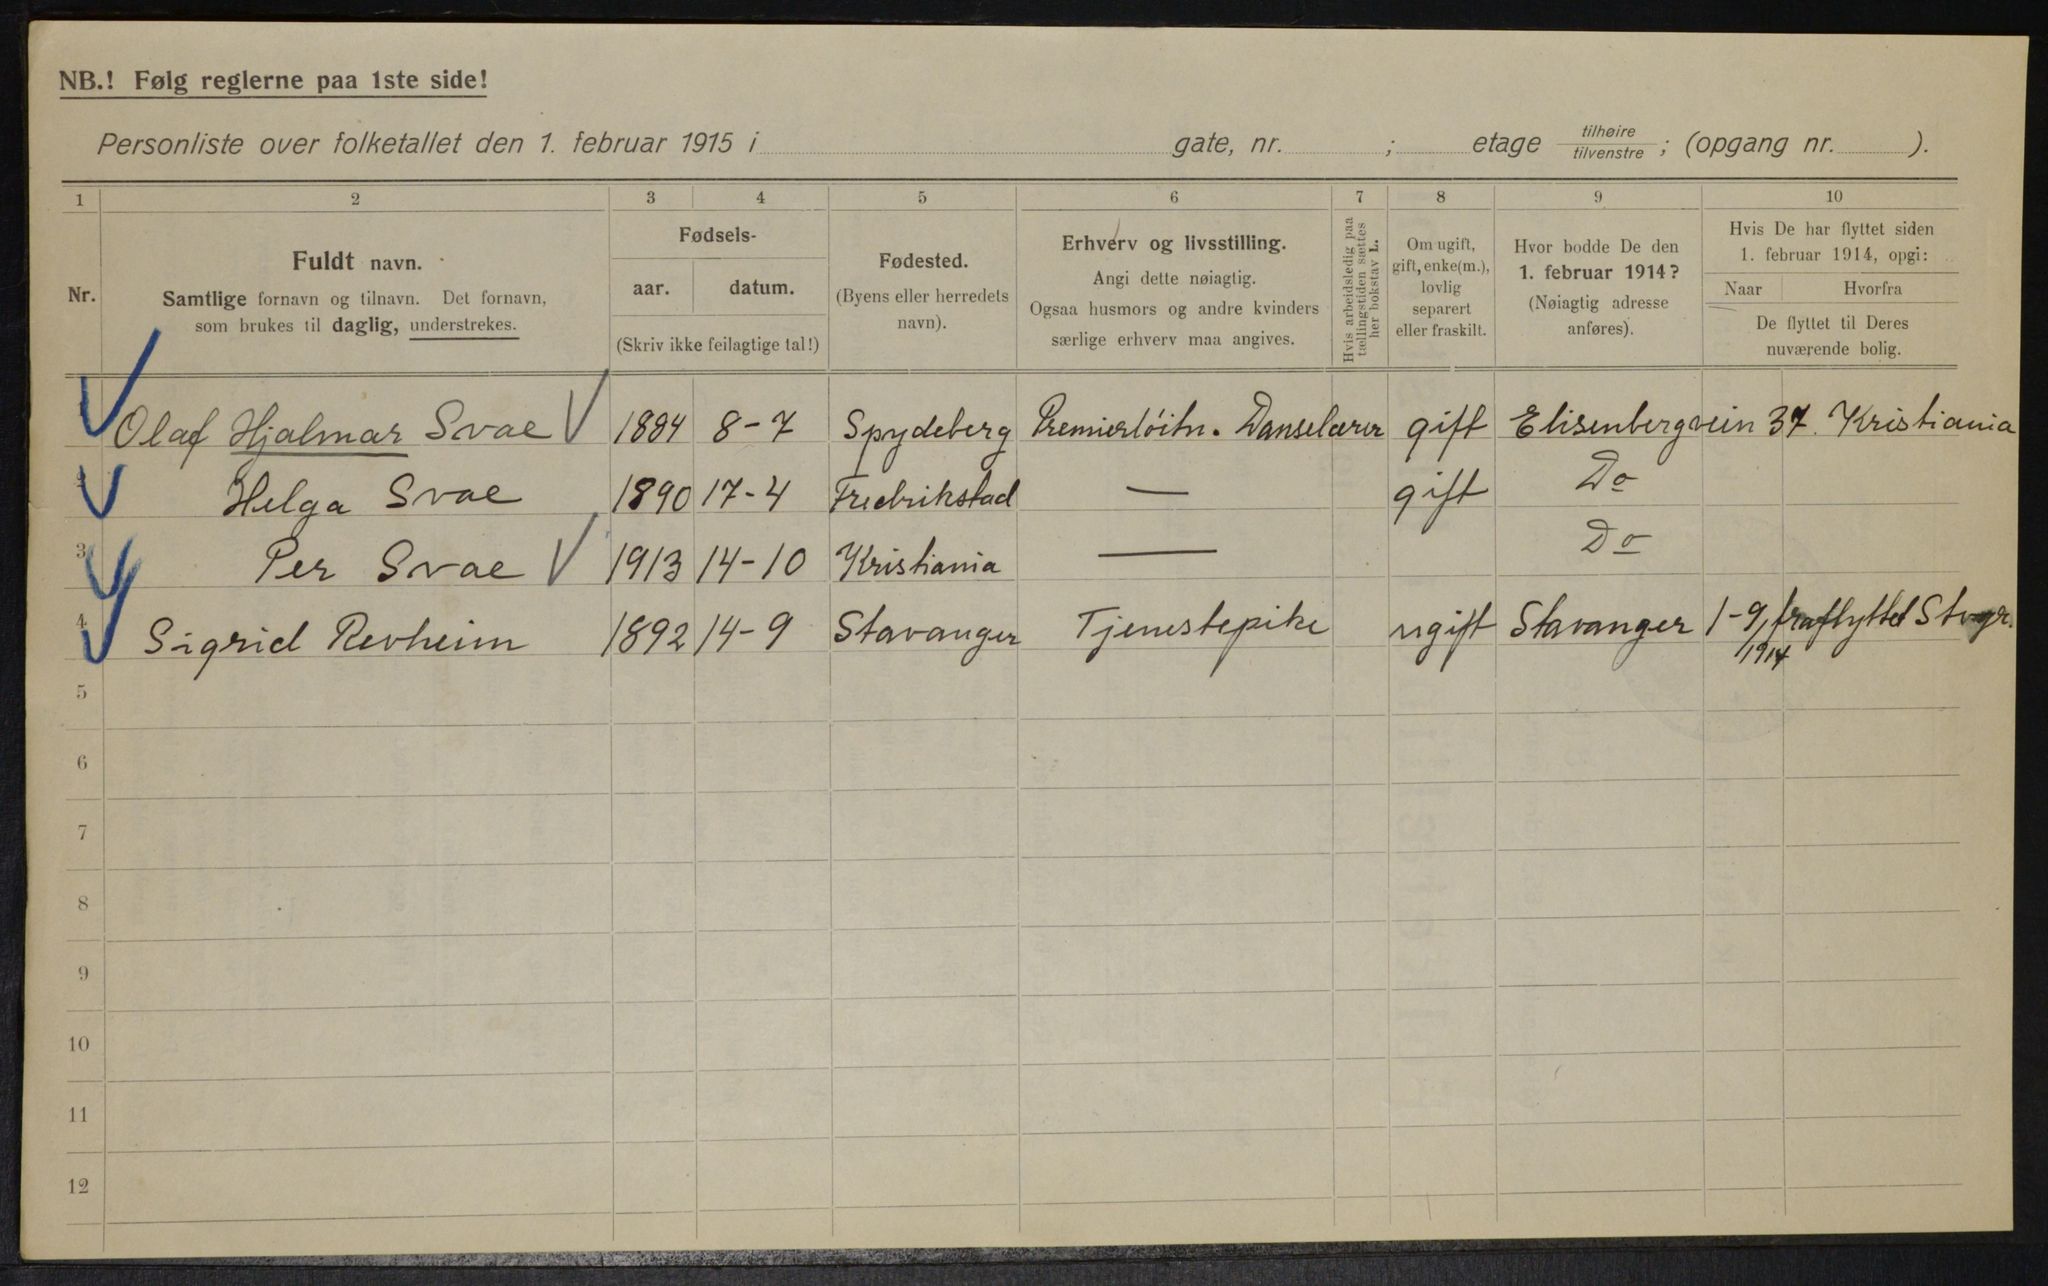 NB.! Følg reglerne paa 1ste side!
Personliste over folketallet den 1. februar 1915 i gate, nr. ; etage tilhøire/tilvenstre ; (opgang nr. ).
1 2 3 4 5 6 7 8 9 10
Nr.
Fuldt navn.
Samtlige fornavn og tilnavn. Det fornavn,
som brukes til daglig, understrekes.
Fødsels-
aar. datum.
(Skriv ikke feilagtige tal!)
Fødested.
(Byens eller herredets
navn).
Erhverv og livsstilling.
Angi dette nøiagtig.
Ogsaa husmors og andre kvinders
særlige erhverv maa angives.
Hvis arbeidsledig paa
tællingstiden sættes
her bokstav L.
Om ugift,
gift, enke(m.),
lovlig
separert
eller fraskilt.
Hvor bodde De den
1. februar 1914?
(Nøiagtig adresse
anføres).
Hvis De har flyttet siden
1. februar 1914, opgi:
Naar Hvorfra
De flyttet til Deres
nuværende bolig.
Olaf Hjalmar Svae 1884 8-7 Spydeberg Premierløitn. Danselærer gift Elisenbergvein 37. Kristiania
Helga Svae 1890 17-4 Fredrikstad — gift Do
3 Per Svae 1913 14-10 Kristiania — Do
4 Sigrid Revheim 1892 14-9 Stavanger Tjenestepike ugift Stavanger 1-9, fraflyttet Stvgr.
1914
5
6
7
8
9
10
11
12